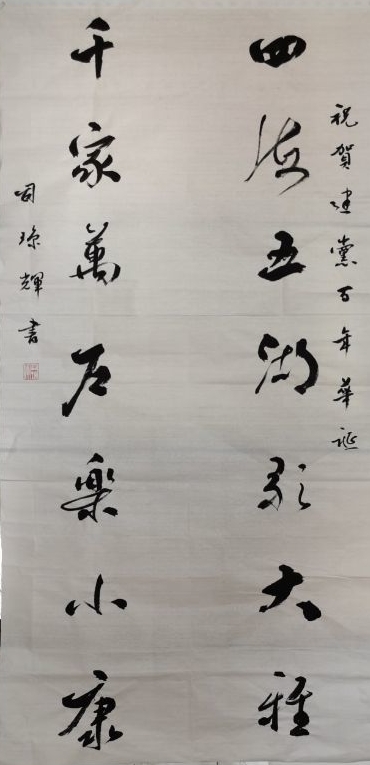 祝賀建黨百年華誕
四海五湖歌大雅
千家萬户樂小康
琼輝書